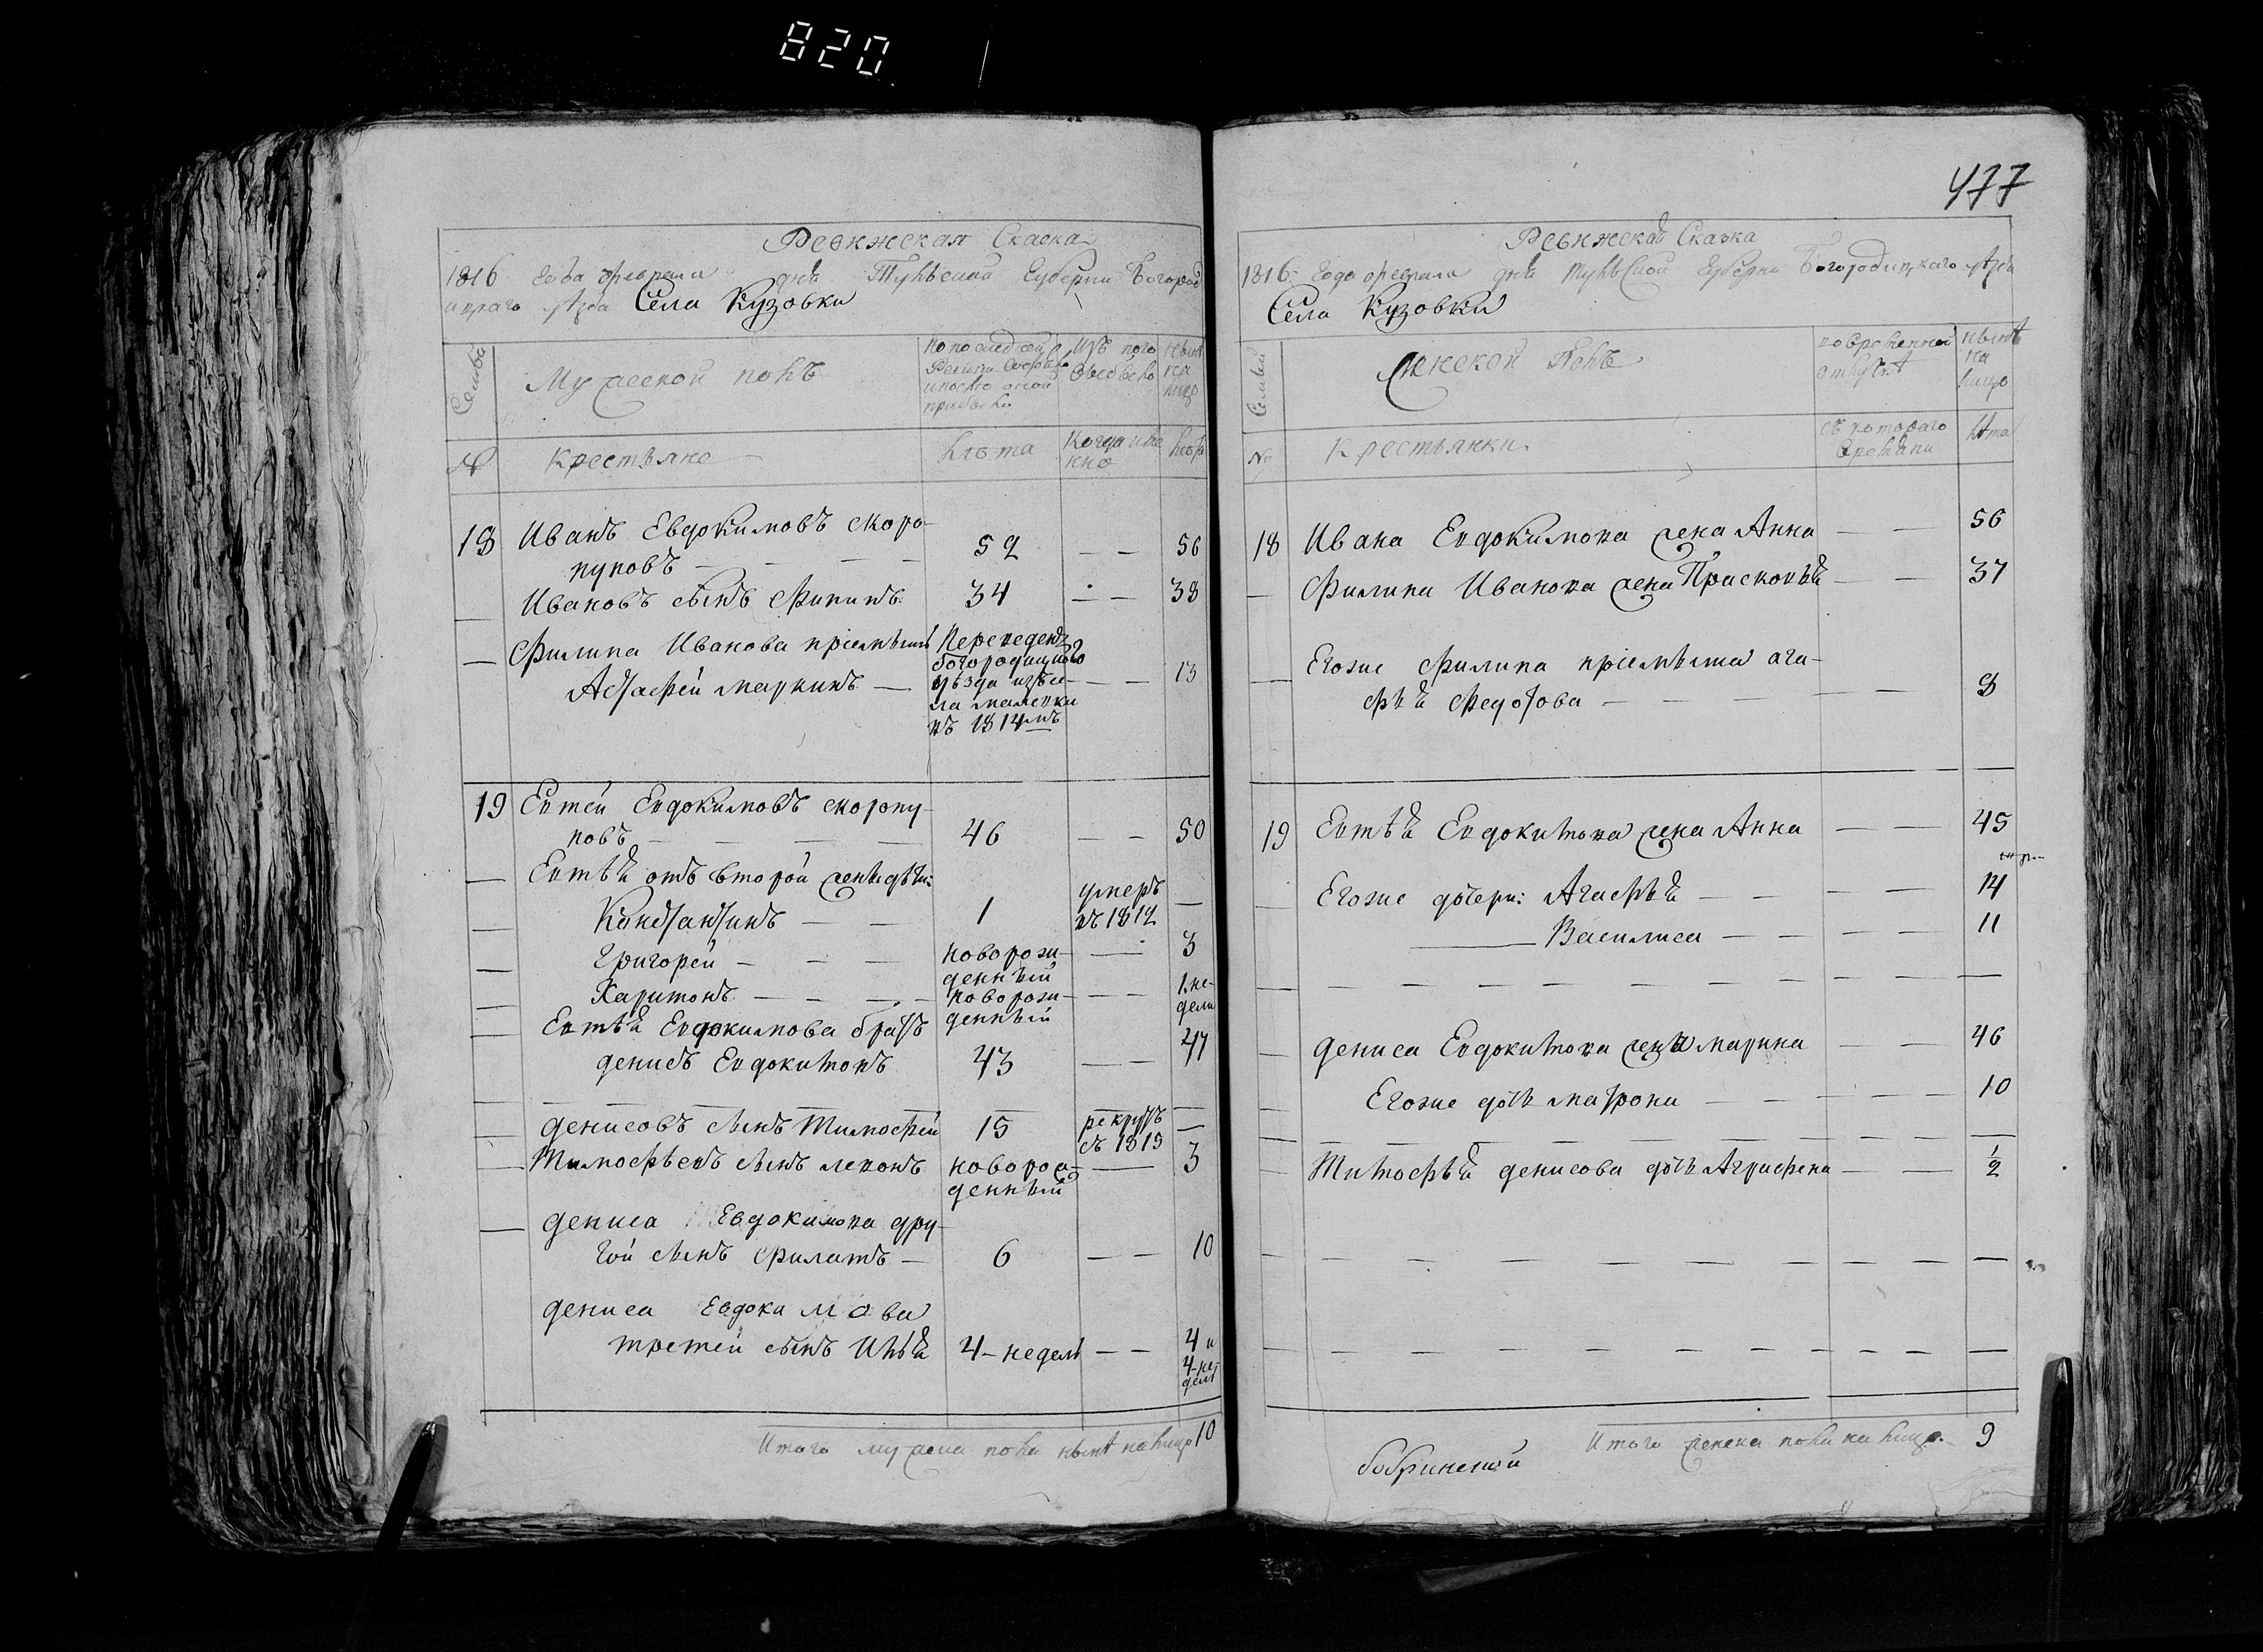 820
477
Ревижская Сказка
1816 года февраля дня Тульской Губерни Богород
ицкаго уѣзда Села Кузовки
Семьи
Мужеской полъ
по последней
Ревизи состояло
и после оной
прибыло
Изъ того
выбыло
ныне
на
лицо
№
Крестьяне
Лѣта
Когда имя
нно
Лѣта
18 Иванъ Евдокимовъ скоро-
пуповъ — — — 52 — — 56
Ивановъ сынъ Филипъ 34 — — 38
— Филипа Иванова пріемышъ
Астафей маркинъ —
Переведенъ
богородицкого
уѣзда изъ се-
ла малевки
въ 1814мъ
— — 13
19 Евтей Евдокимовъ скоропу-
повъ — — — — 46 — — 50
— Евтѣя отъ второй жены дѣти:
— Константинъ — — 1 умеръ
въ 1812 —
— Григорей — — — новорож-
денный — — 3
— Харитонъ — — — новорож-
денный — — 1. не-
дели
— Евтѣя Евдокимова братъ
денисъ Евдокимовъ 43 — — 47
— денисовъ сынъ Тимофей 15 рекрутъ
съ 1813 —
— Тимофѣевъ сынъ леонъ новорож-
денный — 3
— дениса Евдокимова дру-
гой сынъ Филатъ — 6 — — 10
дениса Евдокимова
третей сынъ Илья 4-недель — — 4 и
4-не-
дели
Итого мужеска пола ныне налицо 10
Ревижская Сказка
1816: года февраля дня Тульской Губерни Богородицкаго уѣзда
Села Кузовки
Семьи
Женской Полъ
во временной
отлучке
ныне
на
лицо
№
Крестьянки
съ котораго
времяни
Лѣта
18 Ивана Евдокимова жена Анна — — 56
— Филипа Иванова жена Прасковья — — 37
— Егоже Филипа пріемыша ага-
фья Федотова — — — 8
19 Евтѣя Евдокимова жена Анна — — 45
— Егоже дочери: Агафья — — — — 14
— Василиса — — — — 11
— дениса Евдокимова жена марина — — 46
— Егоже дочь матрона — — — — 10
— Тимофѣя денисова дочь Аграфена — — 1/2
Итого женска пола на лицо. 9
бобринской